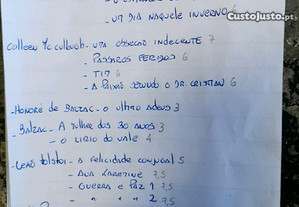 - UM DIA NAQUELE INVERNO 6
CustoJusto.pt
Colleen Mc Cullough - UMA OBSECÃO INDECENTE 7
- PASSAROS FERIDOS 6
- TIM 6
- A PAIXÃO SEGUNDO O DR. CRISTIAN 6
- Honore de BALZAC - O ULTIMO ADEUS 3
- BALZAC - A MULHER DOS 30 ANOS 3
- O LIRIO DO VALE 4
- Leão tolstoi - A FELICIDADE CONJUGAL 5
- ANA KARENINE 7,5
- GUERRA E PAZ 1 7,5
- " " " 2 7,5